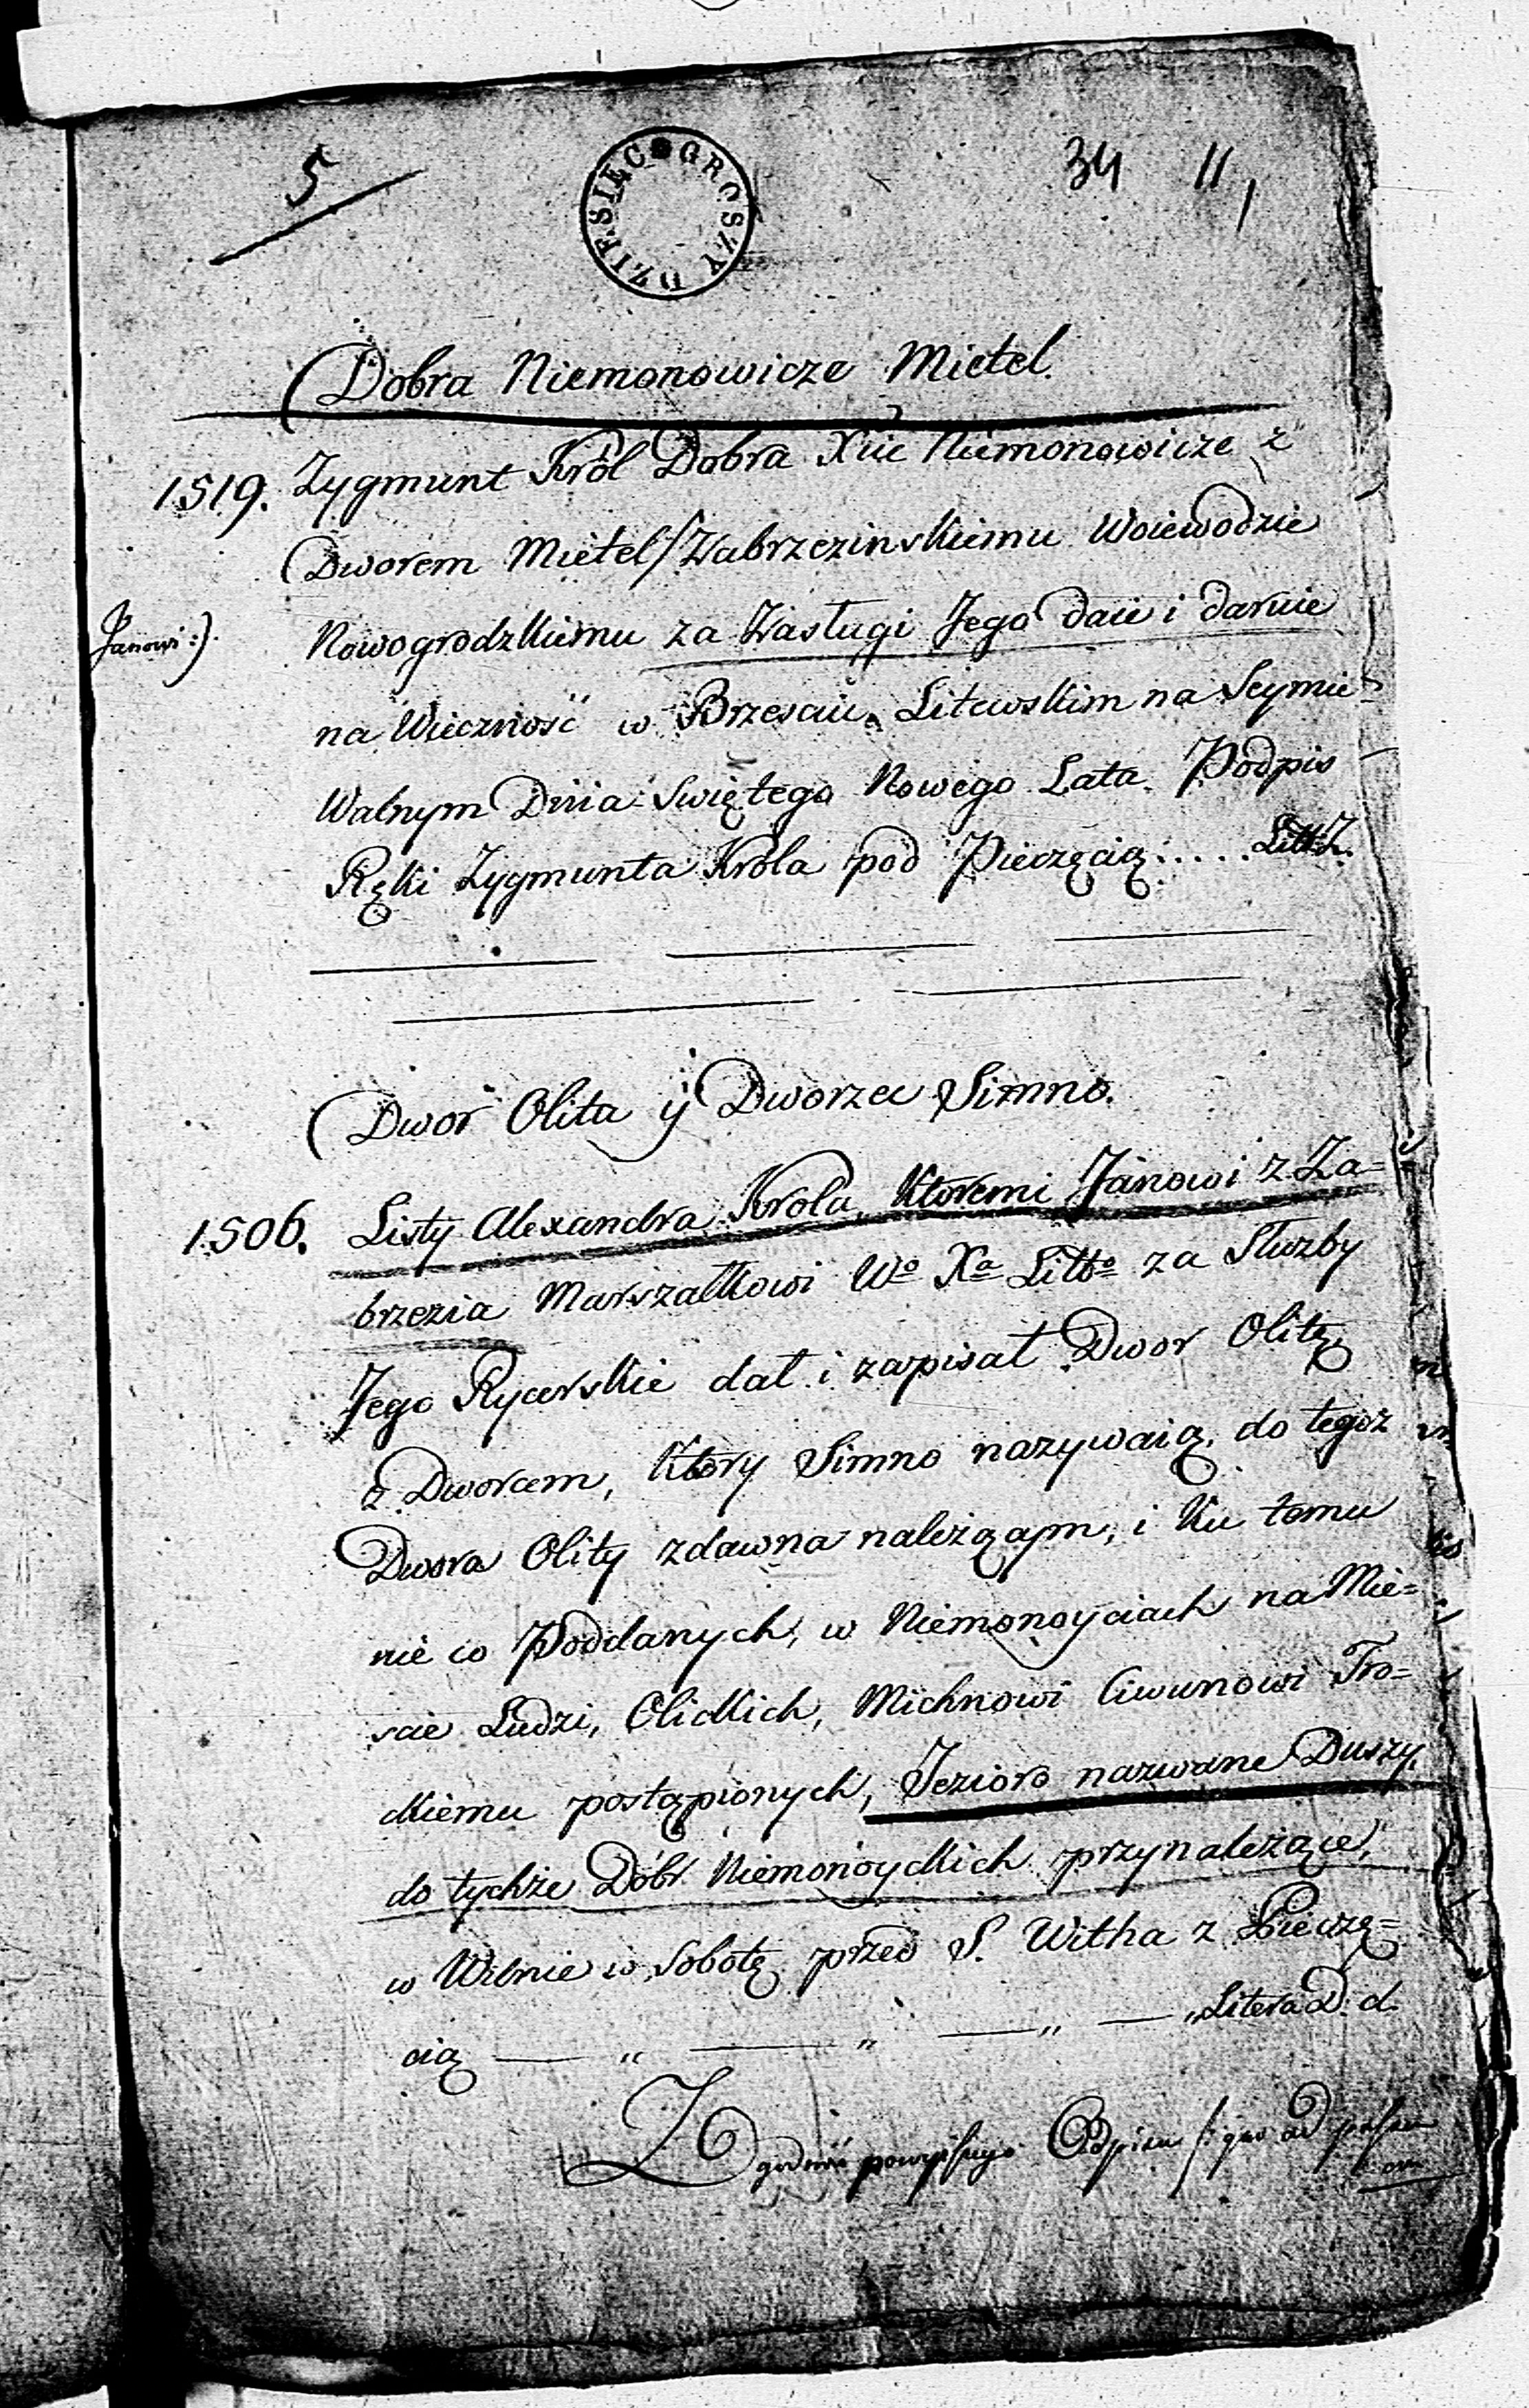 5
DZIESIĘC GROSZY
34 11,
Dobra Niemonowicze Mietel.
1519. Zygmunt Król Dobra Xiię Niemonowicze z
Dworem Mietel/Zabrzezinskiemu Woiewodzie
Janowi :). Nowogrodzkiemu za Zasługi Jego daie i daruie
na Wieczność w Brzesciu Litewskim na Seymie
Walnym Dnia Swiętego Nowego Lata. Podpis
Ręki Zygmunta Króla pod Pieczęcią..... Litt: Z.
Dwor Olita ÿ Dworzec Simno.
1506. Listy Alexandra Krola, Ktoremi Janowi z Za=
brzezia Marszałkowi Wo Xa Litto za Służby
Jego Rycerskie dał i zapisał Dwor Olitę
z Dworcem, Ktory Simno nazywaią, do tegoż
Dwora Olity zdawna należącym, i Ku temu
nie co Poddanych, w Niemonoyciach na Mie=
scie Ludzi, Olickich, Michnowi Ciwunowi Tro=
ckiemu postąpionych, Jezioro nazwane Duszy,
do tychże Dóbr Niemonoyckich przynależące,
w Wilnie w Sobotę przed S. Witha z Pieczę=
cią — " — " — " — " Litera D. d.
Zgodność powyższego Odpisu